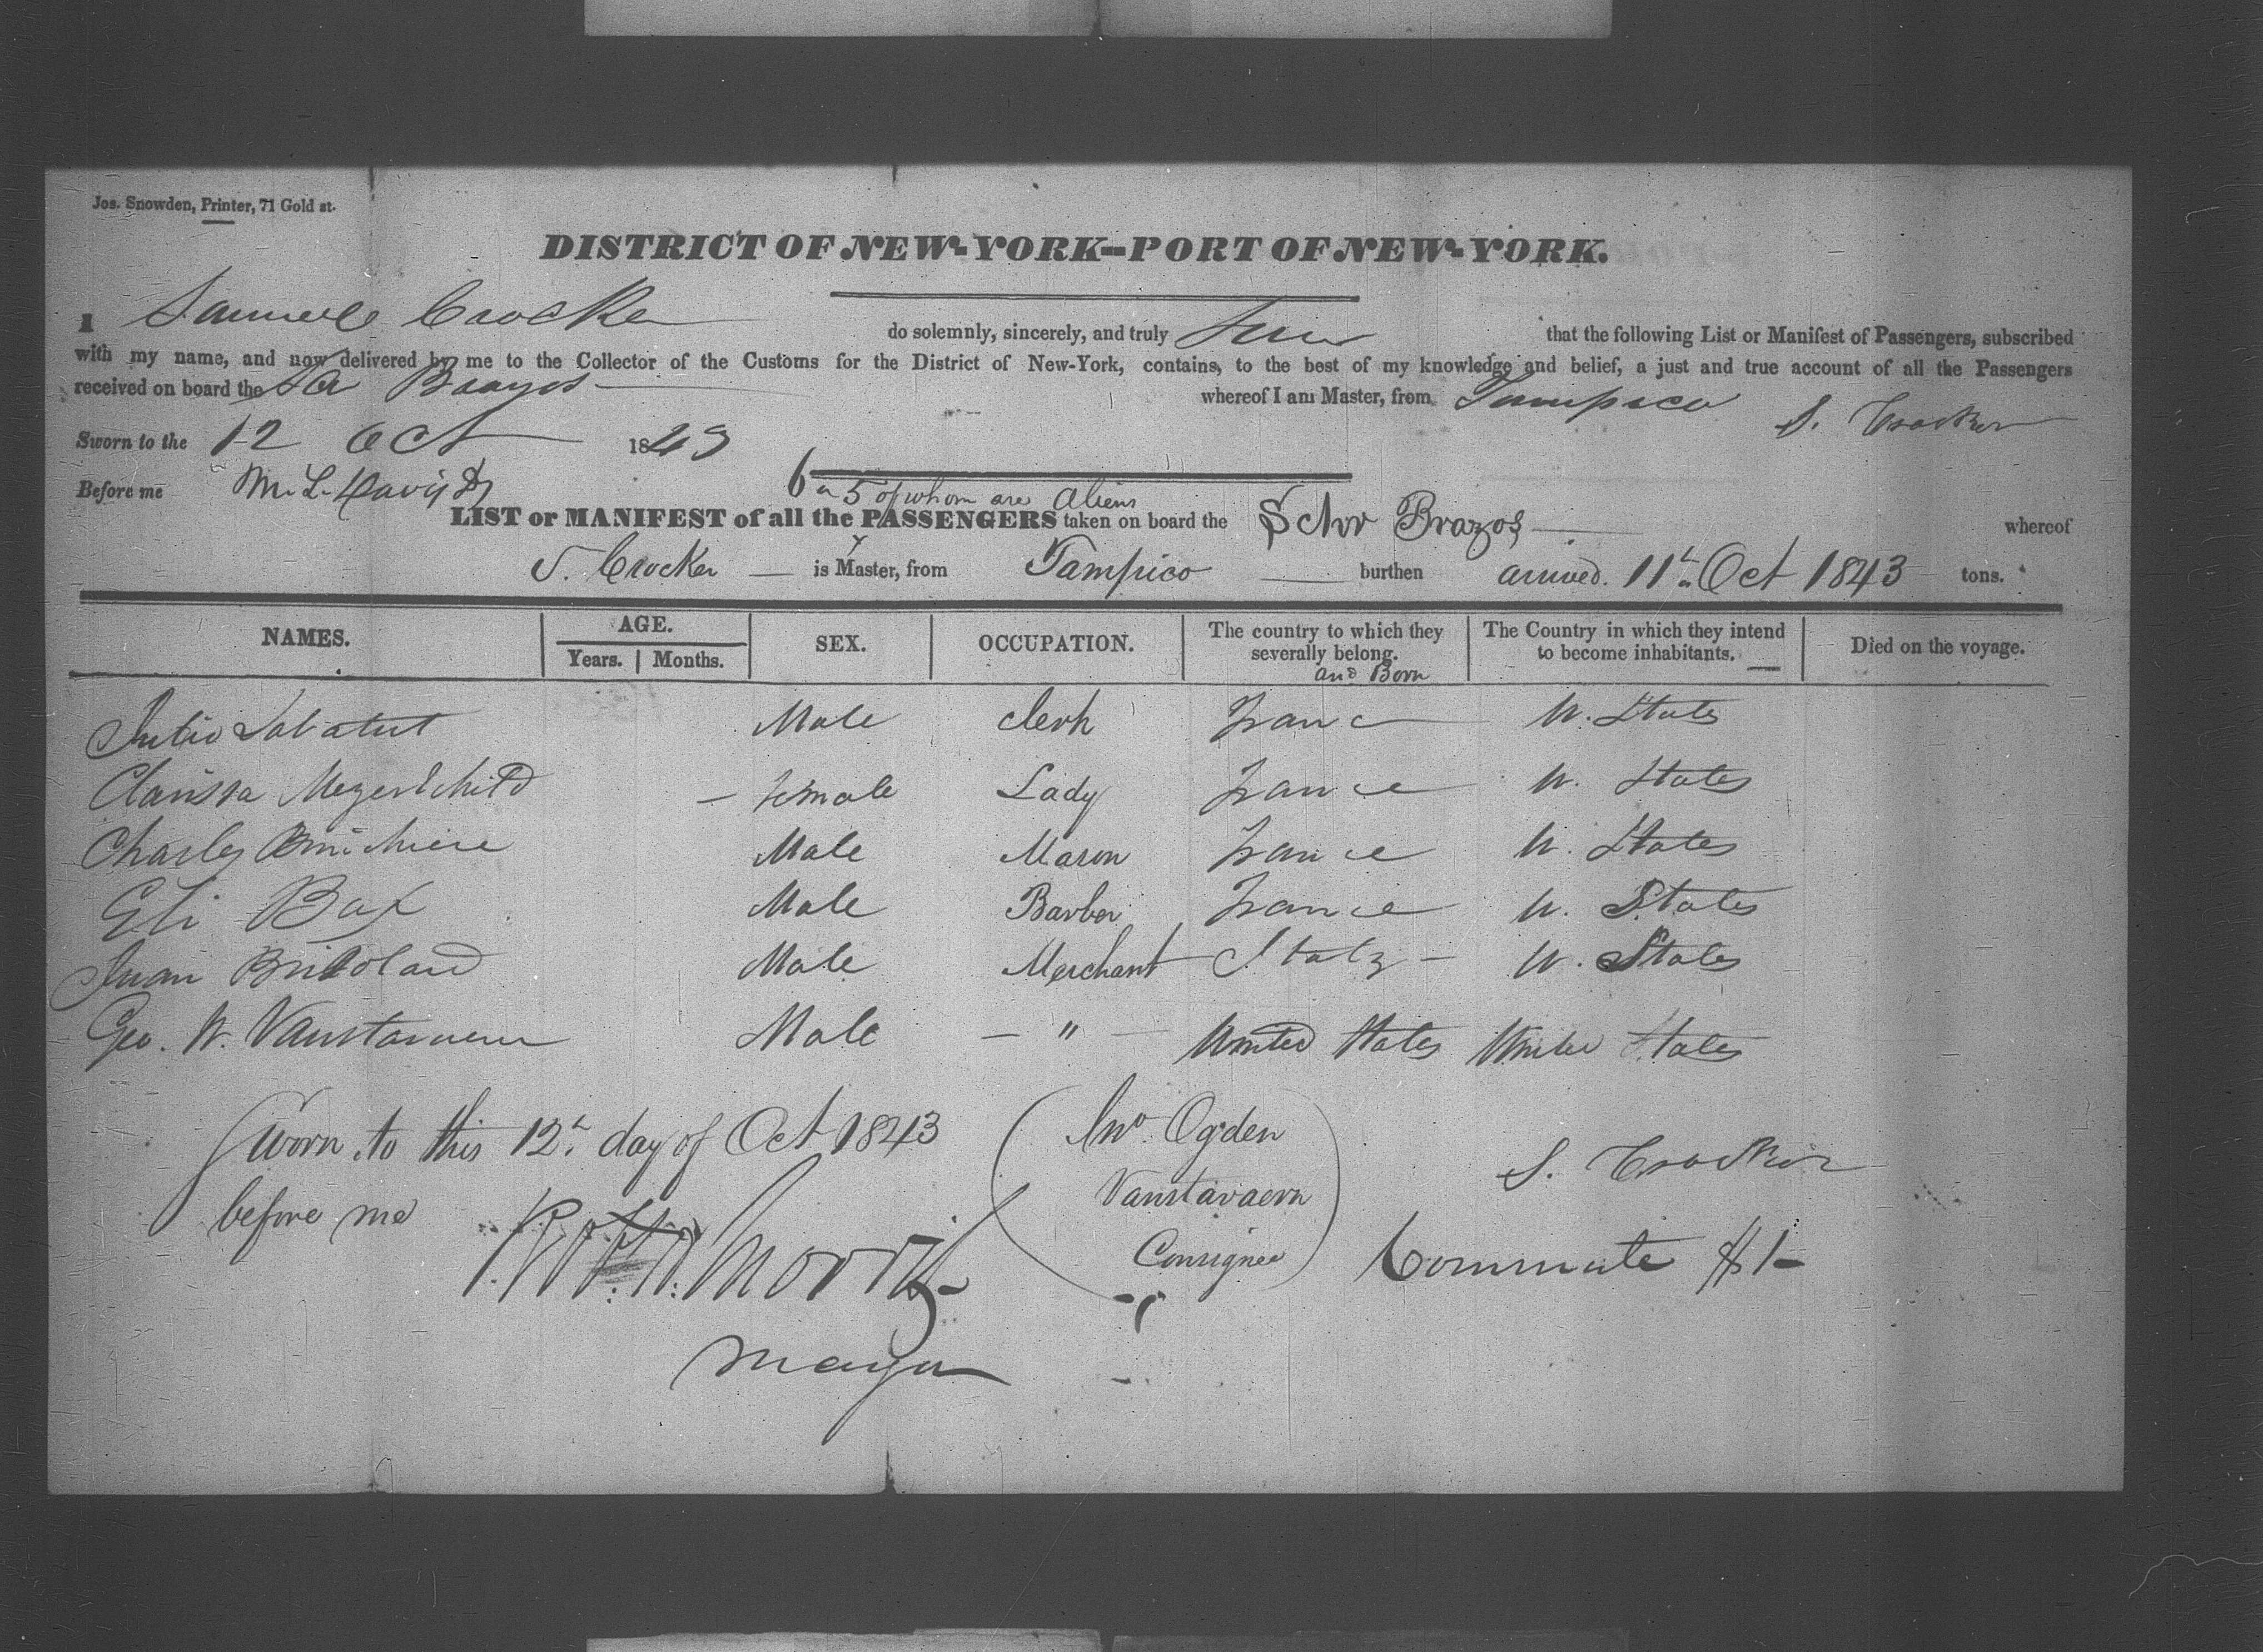 Jos. Snowden, Printer, 71 Gold st.
DISTRICT OF NEW-YORK--PORT OF NEW-YORK.
I Samuel Crocker do solemnly, sincerely, and truly that the following List or Manifest of Passengers, subscribed
with my name, and now delivered by me to the Collector of the Customs for the District of New-York, contains, to the best of my knowledge and belief, a just and true account of all the Passengers
received on board the Brazos whereof I am Master, from Tampico S. Crocker
Sworn to the 12 Oct 1843
Before me M. L. Davis
6 5 of whom are Aliens
LIST or MANIFEST of all the PASSENGERS taken on board the Schr Brazos whereof
S. Crocker is Master, from Tampico burthen arrived. 11th Oct 1843 tons.
NAMES. AGE. Years. Months. SEX. OCCUPATION. The country to which they severally belong. and Born The Country in which they intend to become inhabitants. Died on the voyage.
Julio Labatut Male Clerk France U. States
Clarissa - Female Lady France U. States
Charles Male Mason France U. States
Eli Bax Male Barber France U. States
Juan Male Merchant Italy - U. States
Geo. W. Vanstavoren Male - " - United States United States
Sworn to this 12th day of Oct 1843
before me
Robt. H. Morris
Mayor
Jno Ogden
Vanstavaern
Consignee
S. Crocker
Commute $1-